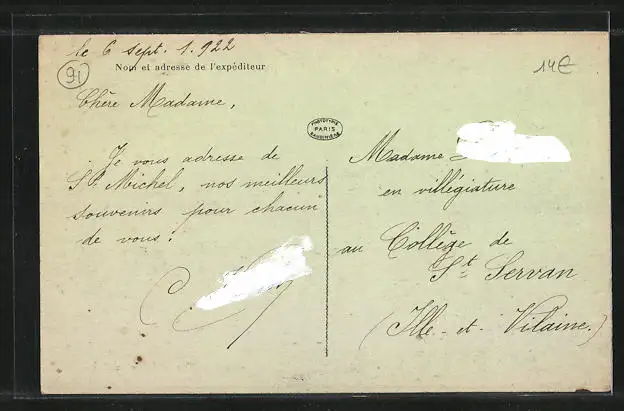 le 6 sept. 1.922
Nom et adresse de l'expéditeur
91
14€
Chère Madame,
Je vous adresse de
St. Michel, nos meilleurs
souvenirs pour chacun
de vous.
C.
PHOTOTYPIE
PARIS
BAUDINIÈRE
Madame
en villégiature
au Collège de
St Servan
(Ille-et-Vilaine.)